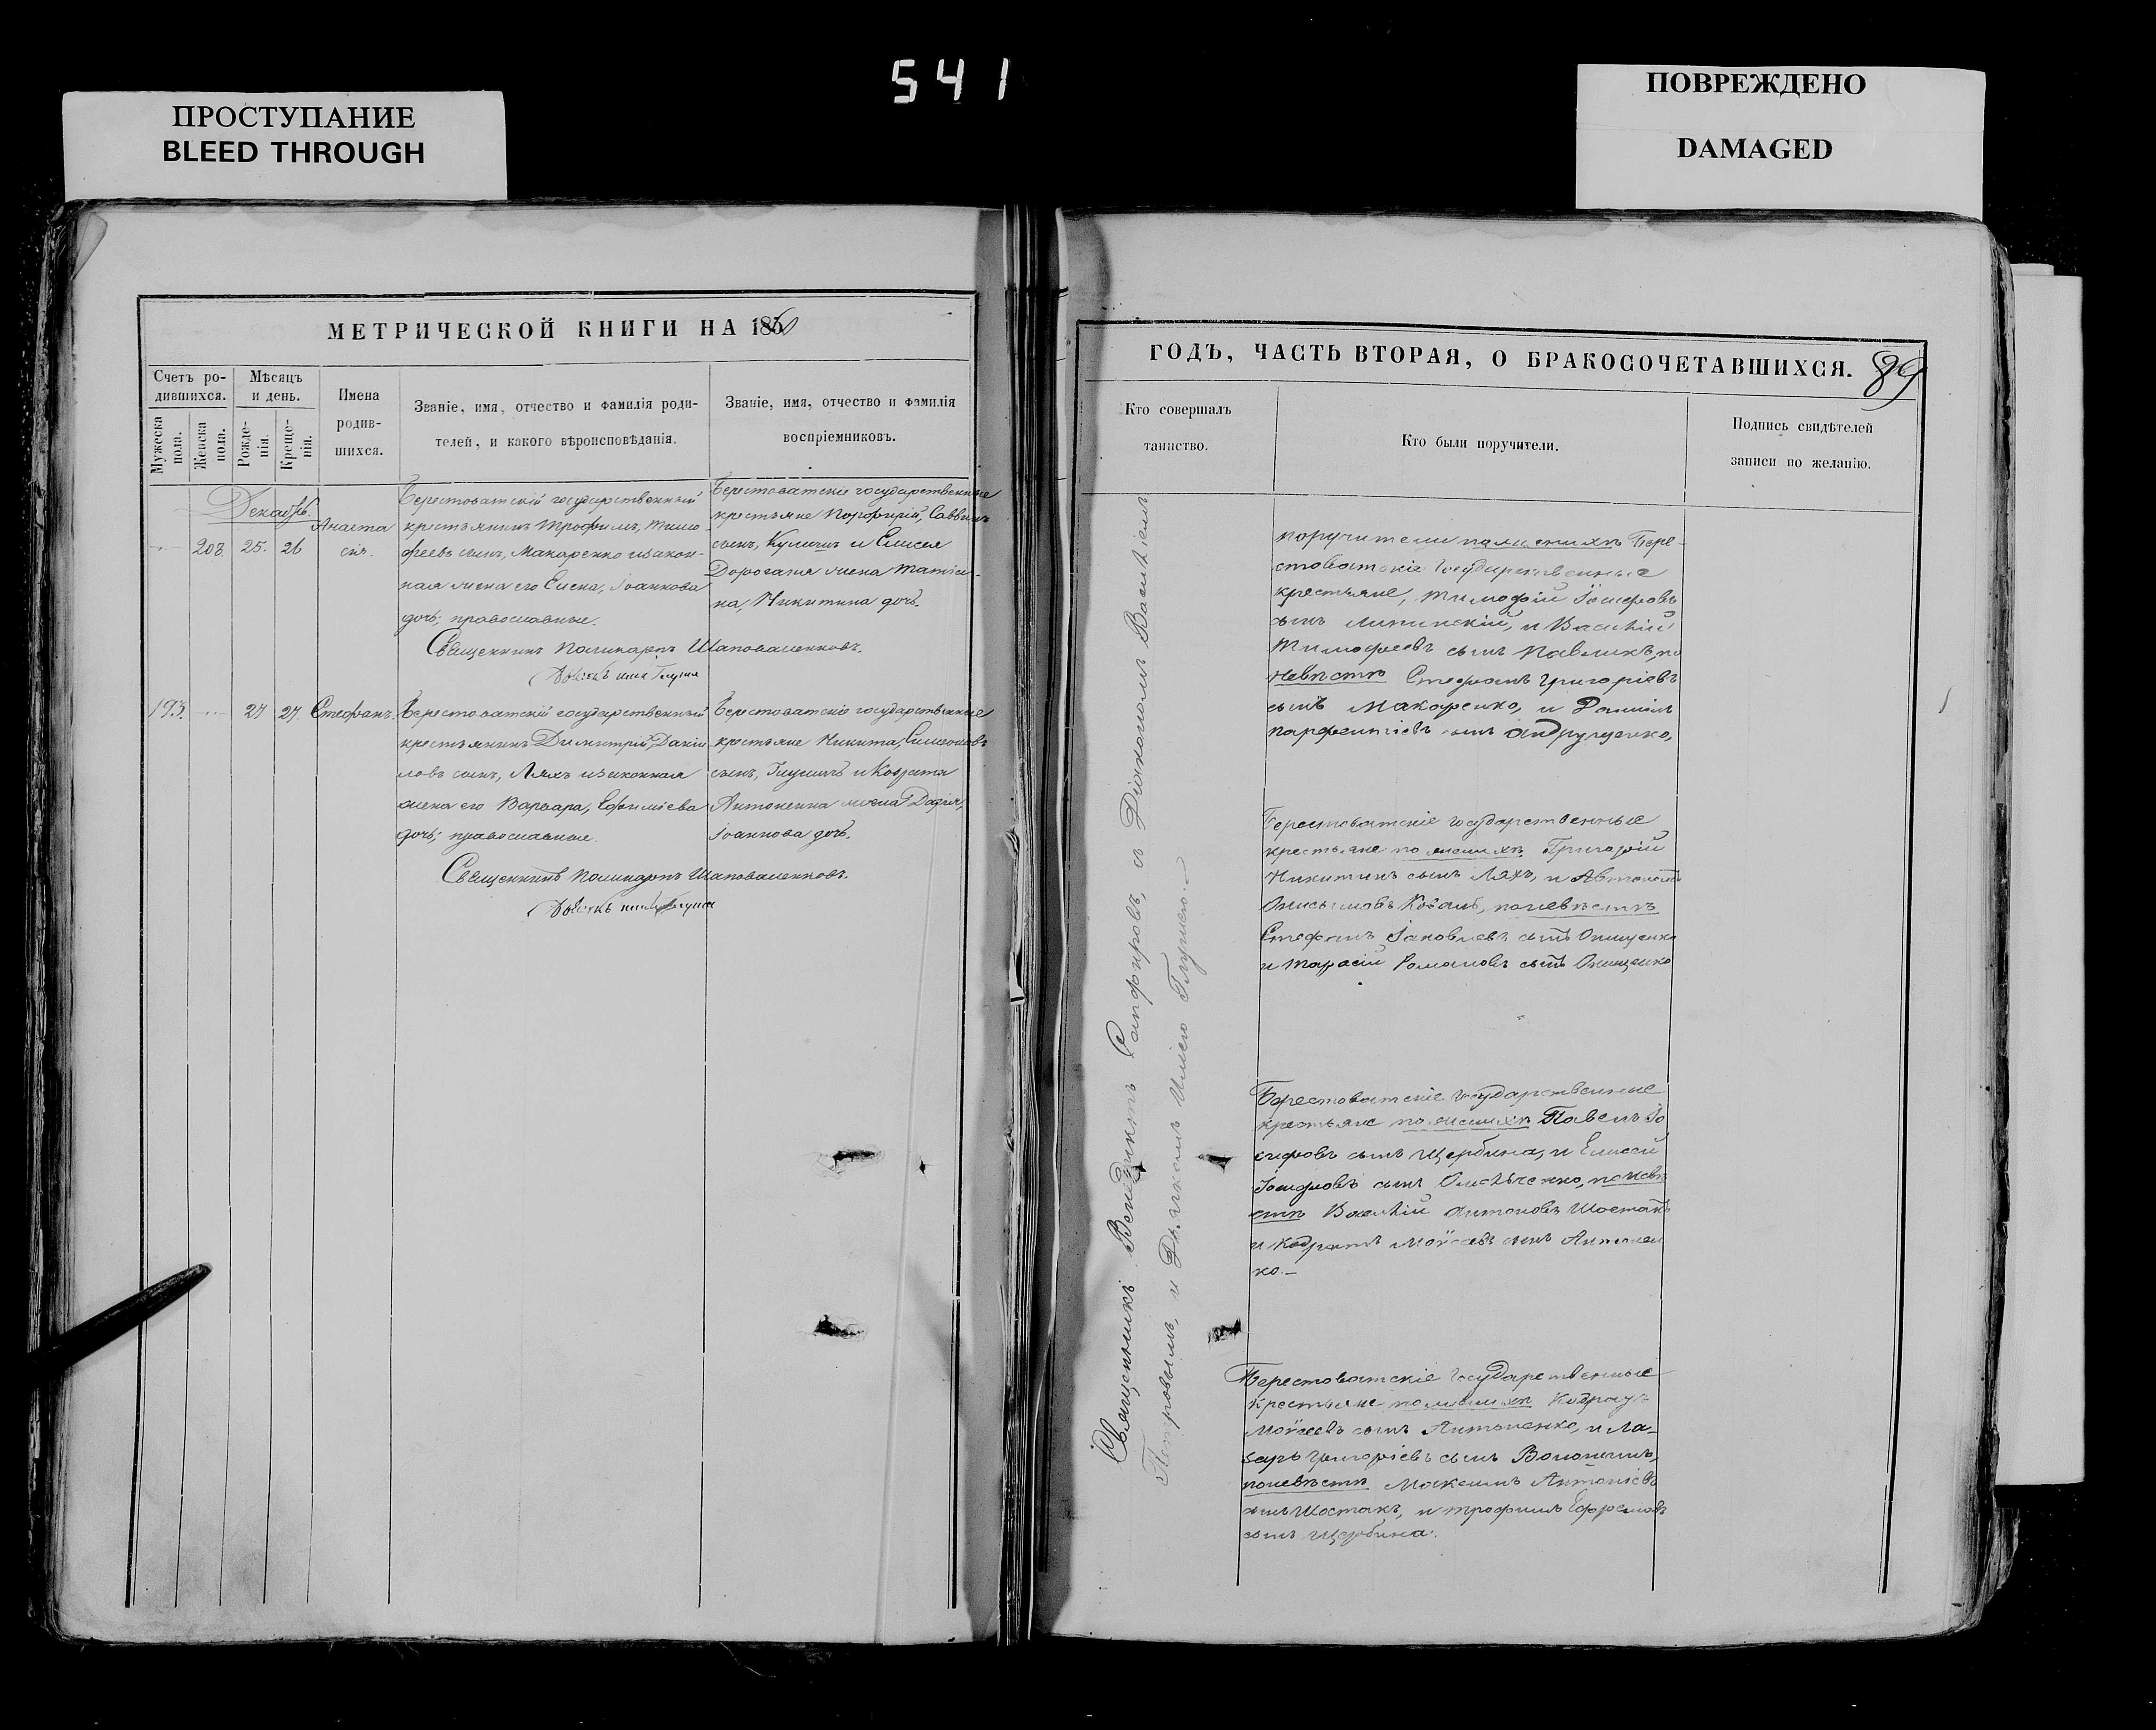 541
ПРОСТУПАНИЕ
BLEED THROUGH
ПОВРЕЖДЕНО
DAMAGED
МЕТРИЧЕСКОЙ КНИГИ НА 1860
Счетъ ро-
дившихся.
Мужеска
пола.
Женска
пола.
Мѣсяцъ
и день.
Рожде-
нія.
Креще-
нія.
Имена
родив-
шихся.
Званіе, имя, отчество и фамилія роди-
телей, и какого вѣроисповѣданія.
Званіе, имя, отчество и фамилія
воспріемниковъ.
Декабрь.
203 25. 26
Анаста
сія.
Берестоватскій государственный
крестьянинъ Трофимъ, Тимо
феевъ сынъ, Макаренко и закон-
ная жена его Елена, Іоаннова
дочь; православные.
Берестоватскіе государственные
крестьяне Порфирій, Саввинъ
сынъ, и Елисея
жена Татіа-
на, Никитина дочь.
Священникъ Поликарпъ Шаповаленковъ.
193. 27 27. Стефанъ.
Берестоватскій государственный
крестьянинъ Димитрій, Даніи
ловъ сынъ, Ляхъ и законная
жена его Варвара, Ефиміева
дочь; православные.
Берестоватскіе государственные
крестьяне Никита, Симеоновъ
сынъ, и Кодрата
Антоненка жена
Іоаннова дочь.
Священникъ Поликарпъ Шаповаленковъ.
ГОДЪ, ЧАСТЬ ВТОРАЯ, О БРАКОСОЧЕТАВШИХСЯ. 89
Кто совершалъ
таинство.
Кто были поручители.
Подпись свидѣтелей
записи по желанію.
Священникъ Венедиктъ Сапфировъ, съ Діакономъ Василіемъ
Петровымъ, и Дьячкомъ Иліею Глушею
поручители по женихѣ Бере-
стоватскіе государственные
крестьяне, Тимофей Іосифовъ
сынъ Липинскій, и Василій
Тимофеевъ сынъ Павликъ, по
невѣстѣ Стефанъ Григоріевъ
сынъ Макаренко, и Даніилъ
Парфентіевъ сынъ Андрущенко,
Берестоватскіе государственные
крестьяне по женихѣ Григорій
Никитинъ сынъ Ляхъ, и
по невѣстѣ
Стефанъ Іаковлевъ сынъ Онищенко
и Тарасій Романовъ сынъ Онищенко
Берестоватскіе государственные
крестьяне по женихѣ Павелъ Іо
сифовъ сынъ Щербина, и Елисей
Іосифовъ сынъ по невѣ
стѣ Василій Антоновъ Шостакъ
и Кодратъ Моѵсеевъ сынъ Антонен
ко.—
Берестоватскіе государственные
крестьяне по женихѣ Кодратъ
Моѵсеевъ сынъ Антоненко, и Ла-
зарь Григоріевъ сынъ
по невѣстѣ Максимъ Антоніевъ
сынъ Шостакъ, и Трофимъ Ефремовъ
сынъ Щербина.